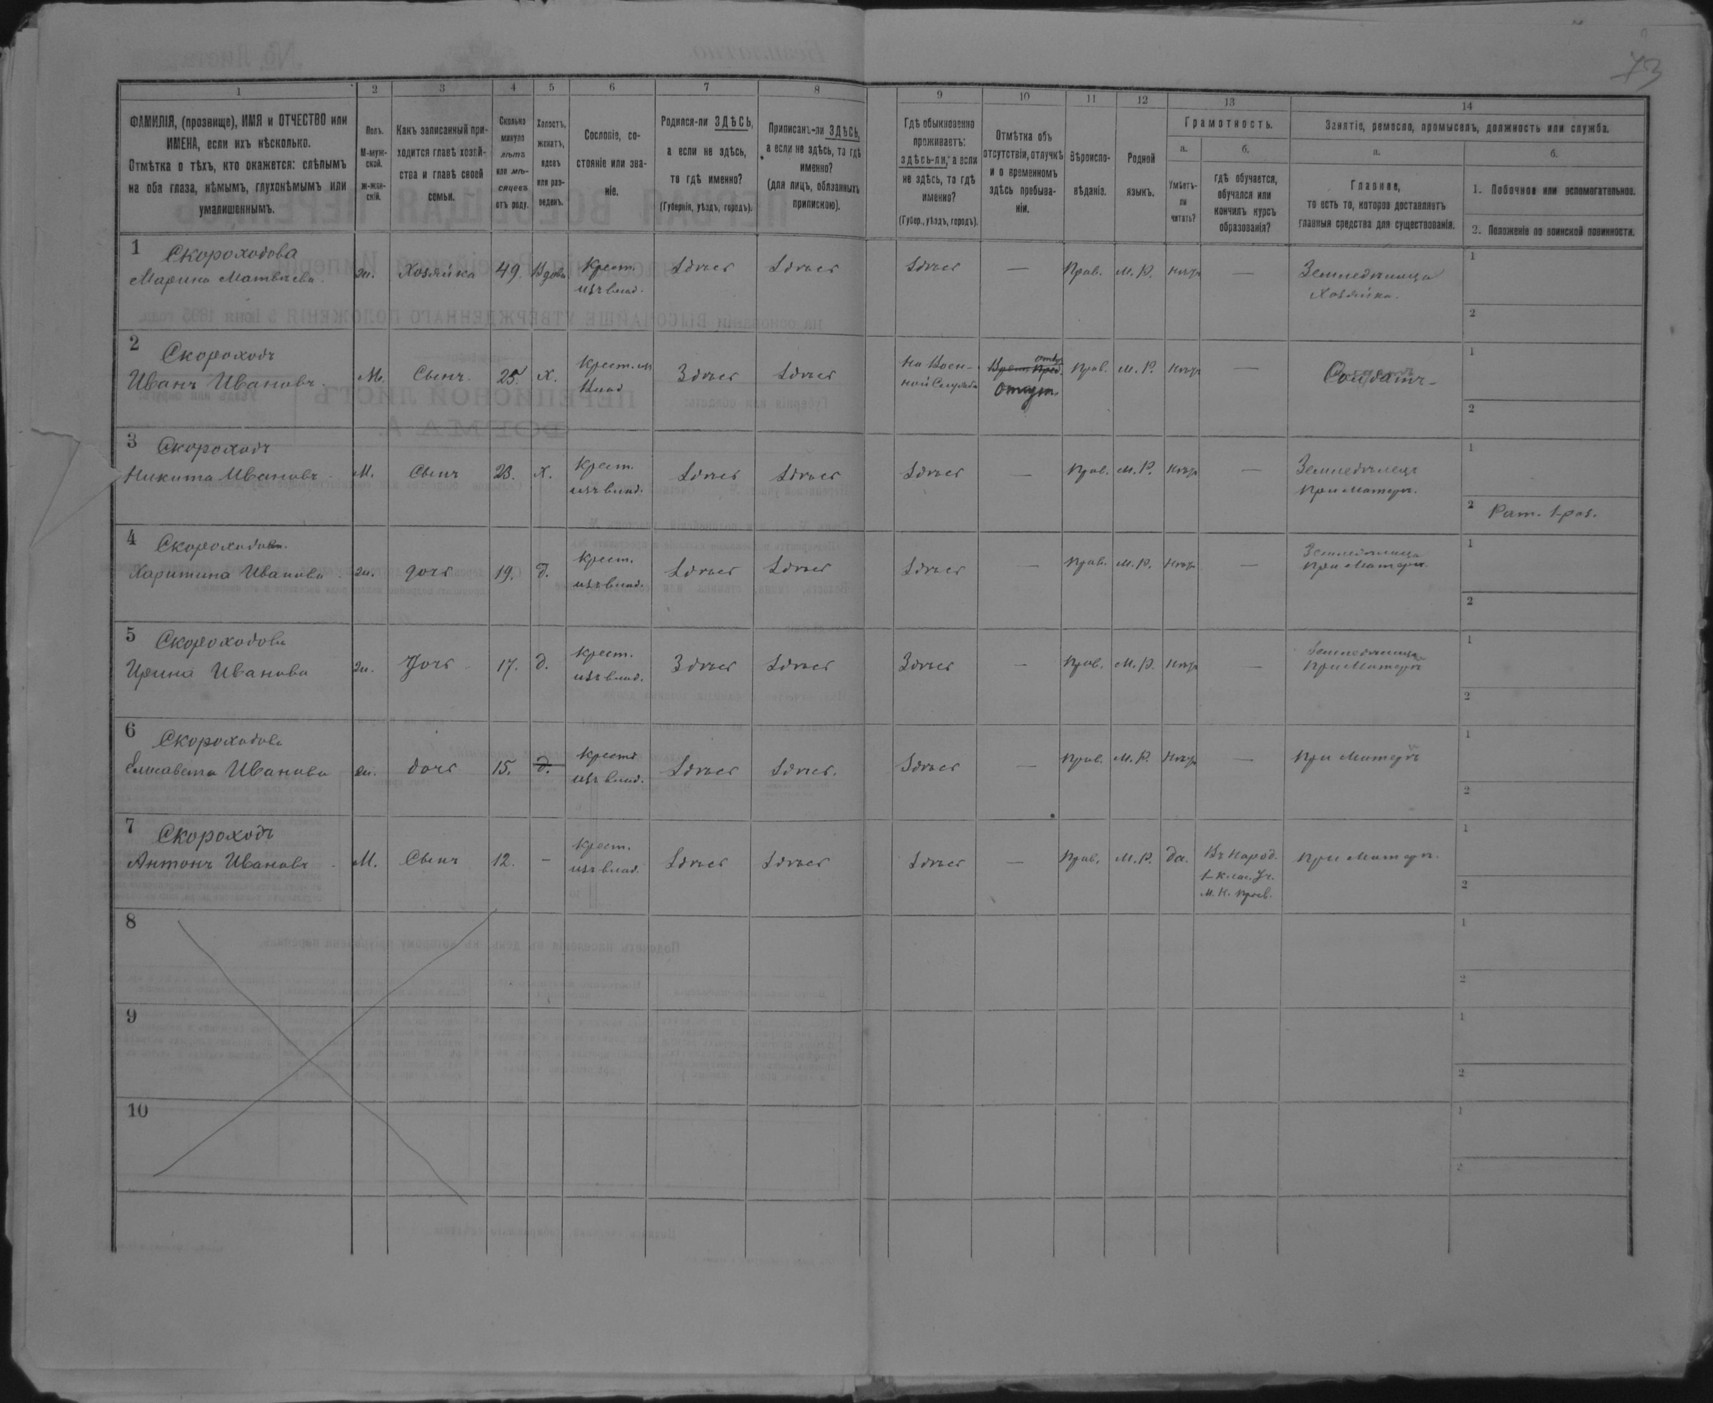 73
1 2 3 4 5 6 7 8 9 10 11 12 13 14
ФАМИЛІЯ, (прозвище), ИМЯ и ОТЧЕСТВО или
ИМЕНА, если ихъ нѣсколько.
Отмѣтка о тѣхъ, кто окажется: слѣпымъ
на оба глаза, нѣмымъ, глухонѣмымъ или
умалишеннымъ.
Полъ.
М-муж-
ской.
ж-жен-
скій.
Какъ записанный при-
ходится главѣ хозяй-
ства и главѣ своей
семьи.
Сколько
минуло
лѣтъ
или мѣ-
сяцевъ
отъ роду.
Холостъ,
женатъ,
вдовъ
или раз-
веденъ.
Сословіе, со-
стояніе или зва-
ніе.
Родился-ли ЗДѢСЬ,
а если не здѣсь,
то гдѣ именно?
(Губернія, уѣздъ, городъ).
Приписанъ-ли ЗДѢСЬ,
а если не здѣсь, то гдѣ
именно?
(для лицъ, обязанныхъ
припискою).
Гдѣ обыкновенно
проживаетъ:
здѣсь-ли, а если
не здѣсь, то гдѣ
именно?
(Губер., уѣздъ, городъ).
Отмѣтка объ
отсутствіи, отлучкѣ
и о временномъ
здѣсь пребыва-
ніи.
Вѣроиспо-
вѣданіе.
Родной
языкъ.
Грамотность.
а.
Умѣетъ-
ли
читать?
б.
гдѣ обучается,
обучался или
кончилъ курсъ
образованія?
Занятіе, ремесло, промыселъ, должность или служба.
а.
Главное,
то есть то, которое доставляетъ
главныя средства для существованія.
б.
1. Побочное или вспомогательное.
2. Положеніе по воинской повинности.
1 Скороходова
Марина Матвѣева. ж. Хозяйка 49. Вдова Крест. изъ влад. Здѣсь Здѣсь Здѣсь — Прав. М. Р. нѣтъ — Земледѣлица Хозяйка.
1
2
2 Скороходъ
Иванъ Ивановъ. М. Сынъ 25. Х. Крест. изъ Влад. Здѣсь Здѣсь На Воен- ной Службѣ Отлуч. Прав. М. Р. нѣтъ — Солдатъ
1
2
3 Скороходъ
Никита Ивановъ. М. Сынъ 23. Х. Крест. изъ влад. Здѣсь Здѣсь Здѣсь — Прав. М. Р. нѣтъ — Земледѣлецъ при Матери.
1
2 Рат. 1 раз.
4 Скороходова
Харитина Иванова. ж. дочь 19. д. Крест. изъ влад. Здѣсь Здѣсь Здѣсь — Прав. М. Р. нѣтъ — Земледѣлица при Матери.
1
2
5 Скороходова
Ирина Иванова ж. Дочь 17. д. Крест. изъ влад. Здѣсь Здѣсь Здѣсь — Прав. М. Р. нѣтъ — Земледѣлица при Матери
1
2
6 Скороходова
Елисавета Иванова ж. дочь 15. д. Крест. изъ влад. Здѣсь Здѣсь. Здѣсь — Прав. М. Р. нѣтъ — при Матери
1
2
7 Скороходъ
Антонъ Ивановъ. М. Сынъ 12. — Крест. изъ влад. Здѣсь Здѣсь Здѣсь — Прав. М. Р. да. Въ народ. 1 кл. Уч. при Матери.
1
2
8
1
2
9
1
2
10
1
2